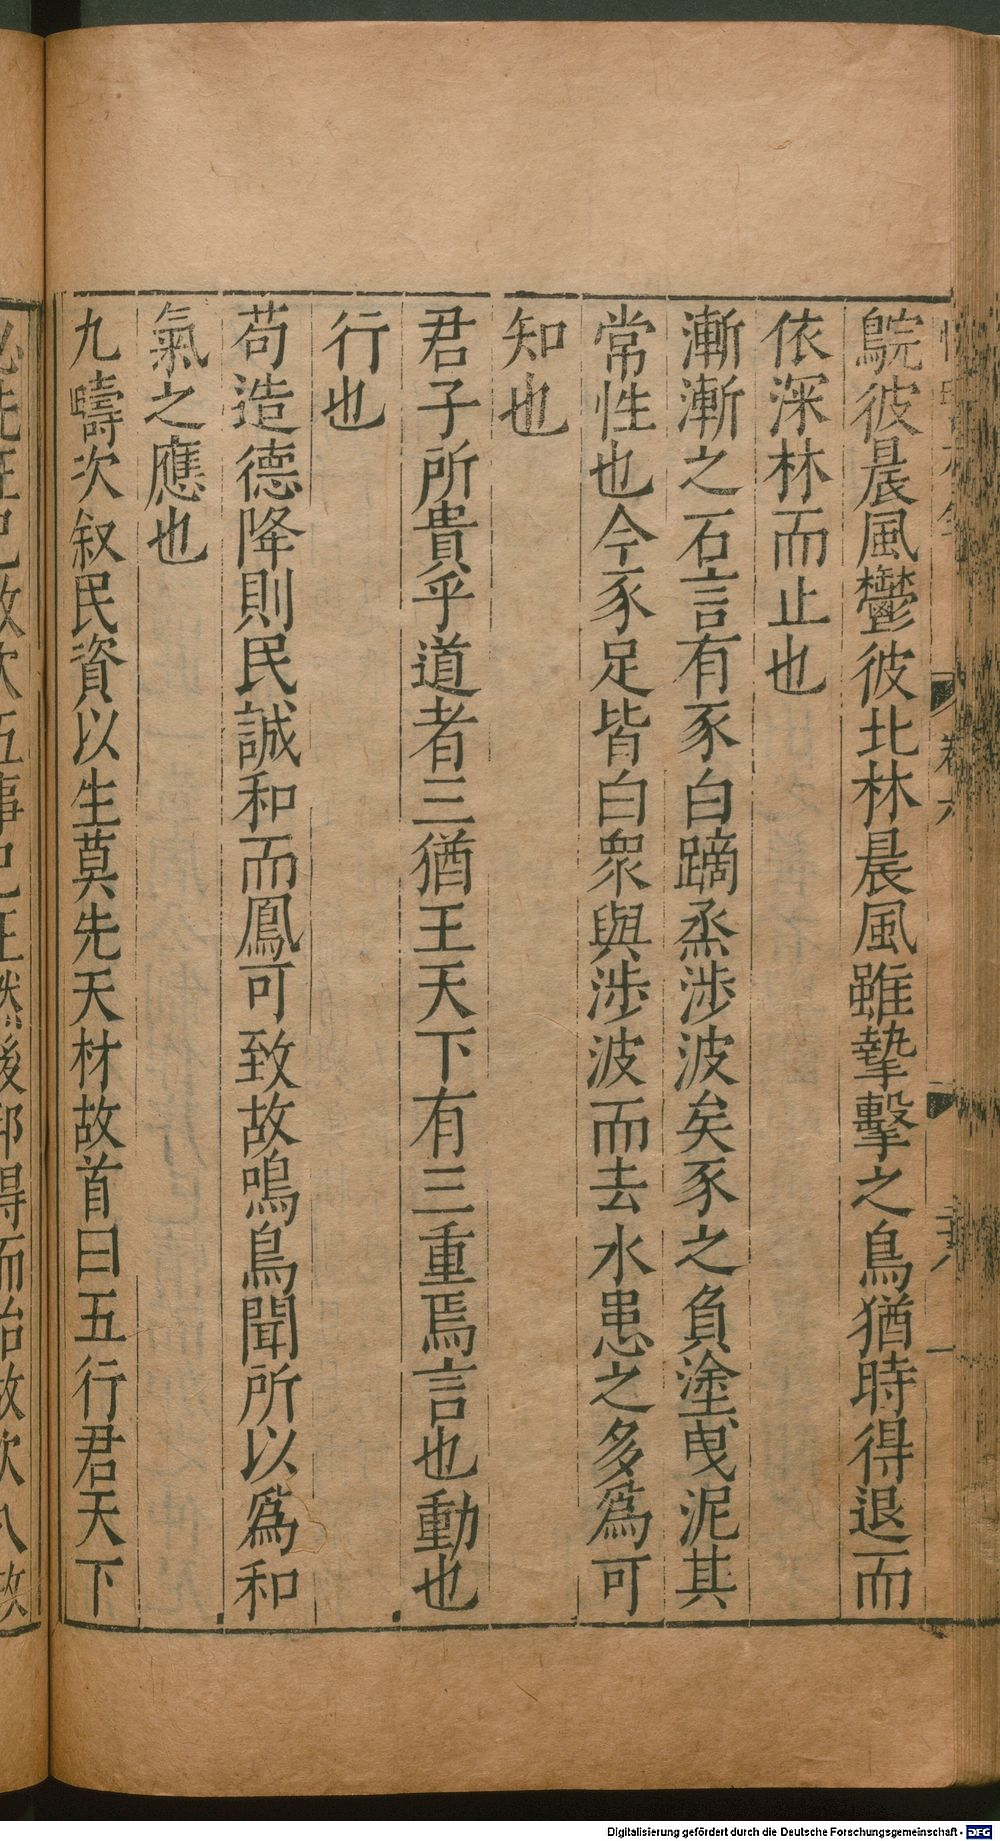 鴥彼晨風鬱彼北林晨風雖摯擊之鳥猶時得退而
依深林而止也
漸漸之石言有豕白蹢烝涉波矣豕之負塗曳泥其
常性也今豕足皆白衆與涉波而去水患之多爲可
知也
君子所貴乎道者三猶王天下有三重焉言也動也
行也
苟造德降則民誠和而鳳可致故鳴鳥聞所以爲和
氣之應也
九疇次叙民資以生莫先天材故首曰五行君天下
卷六
Digitalisierung gefördert durch die Deutsche Forschungsgemeinschaft - DFG